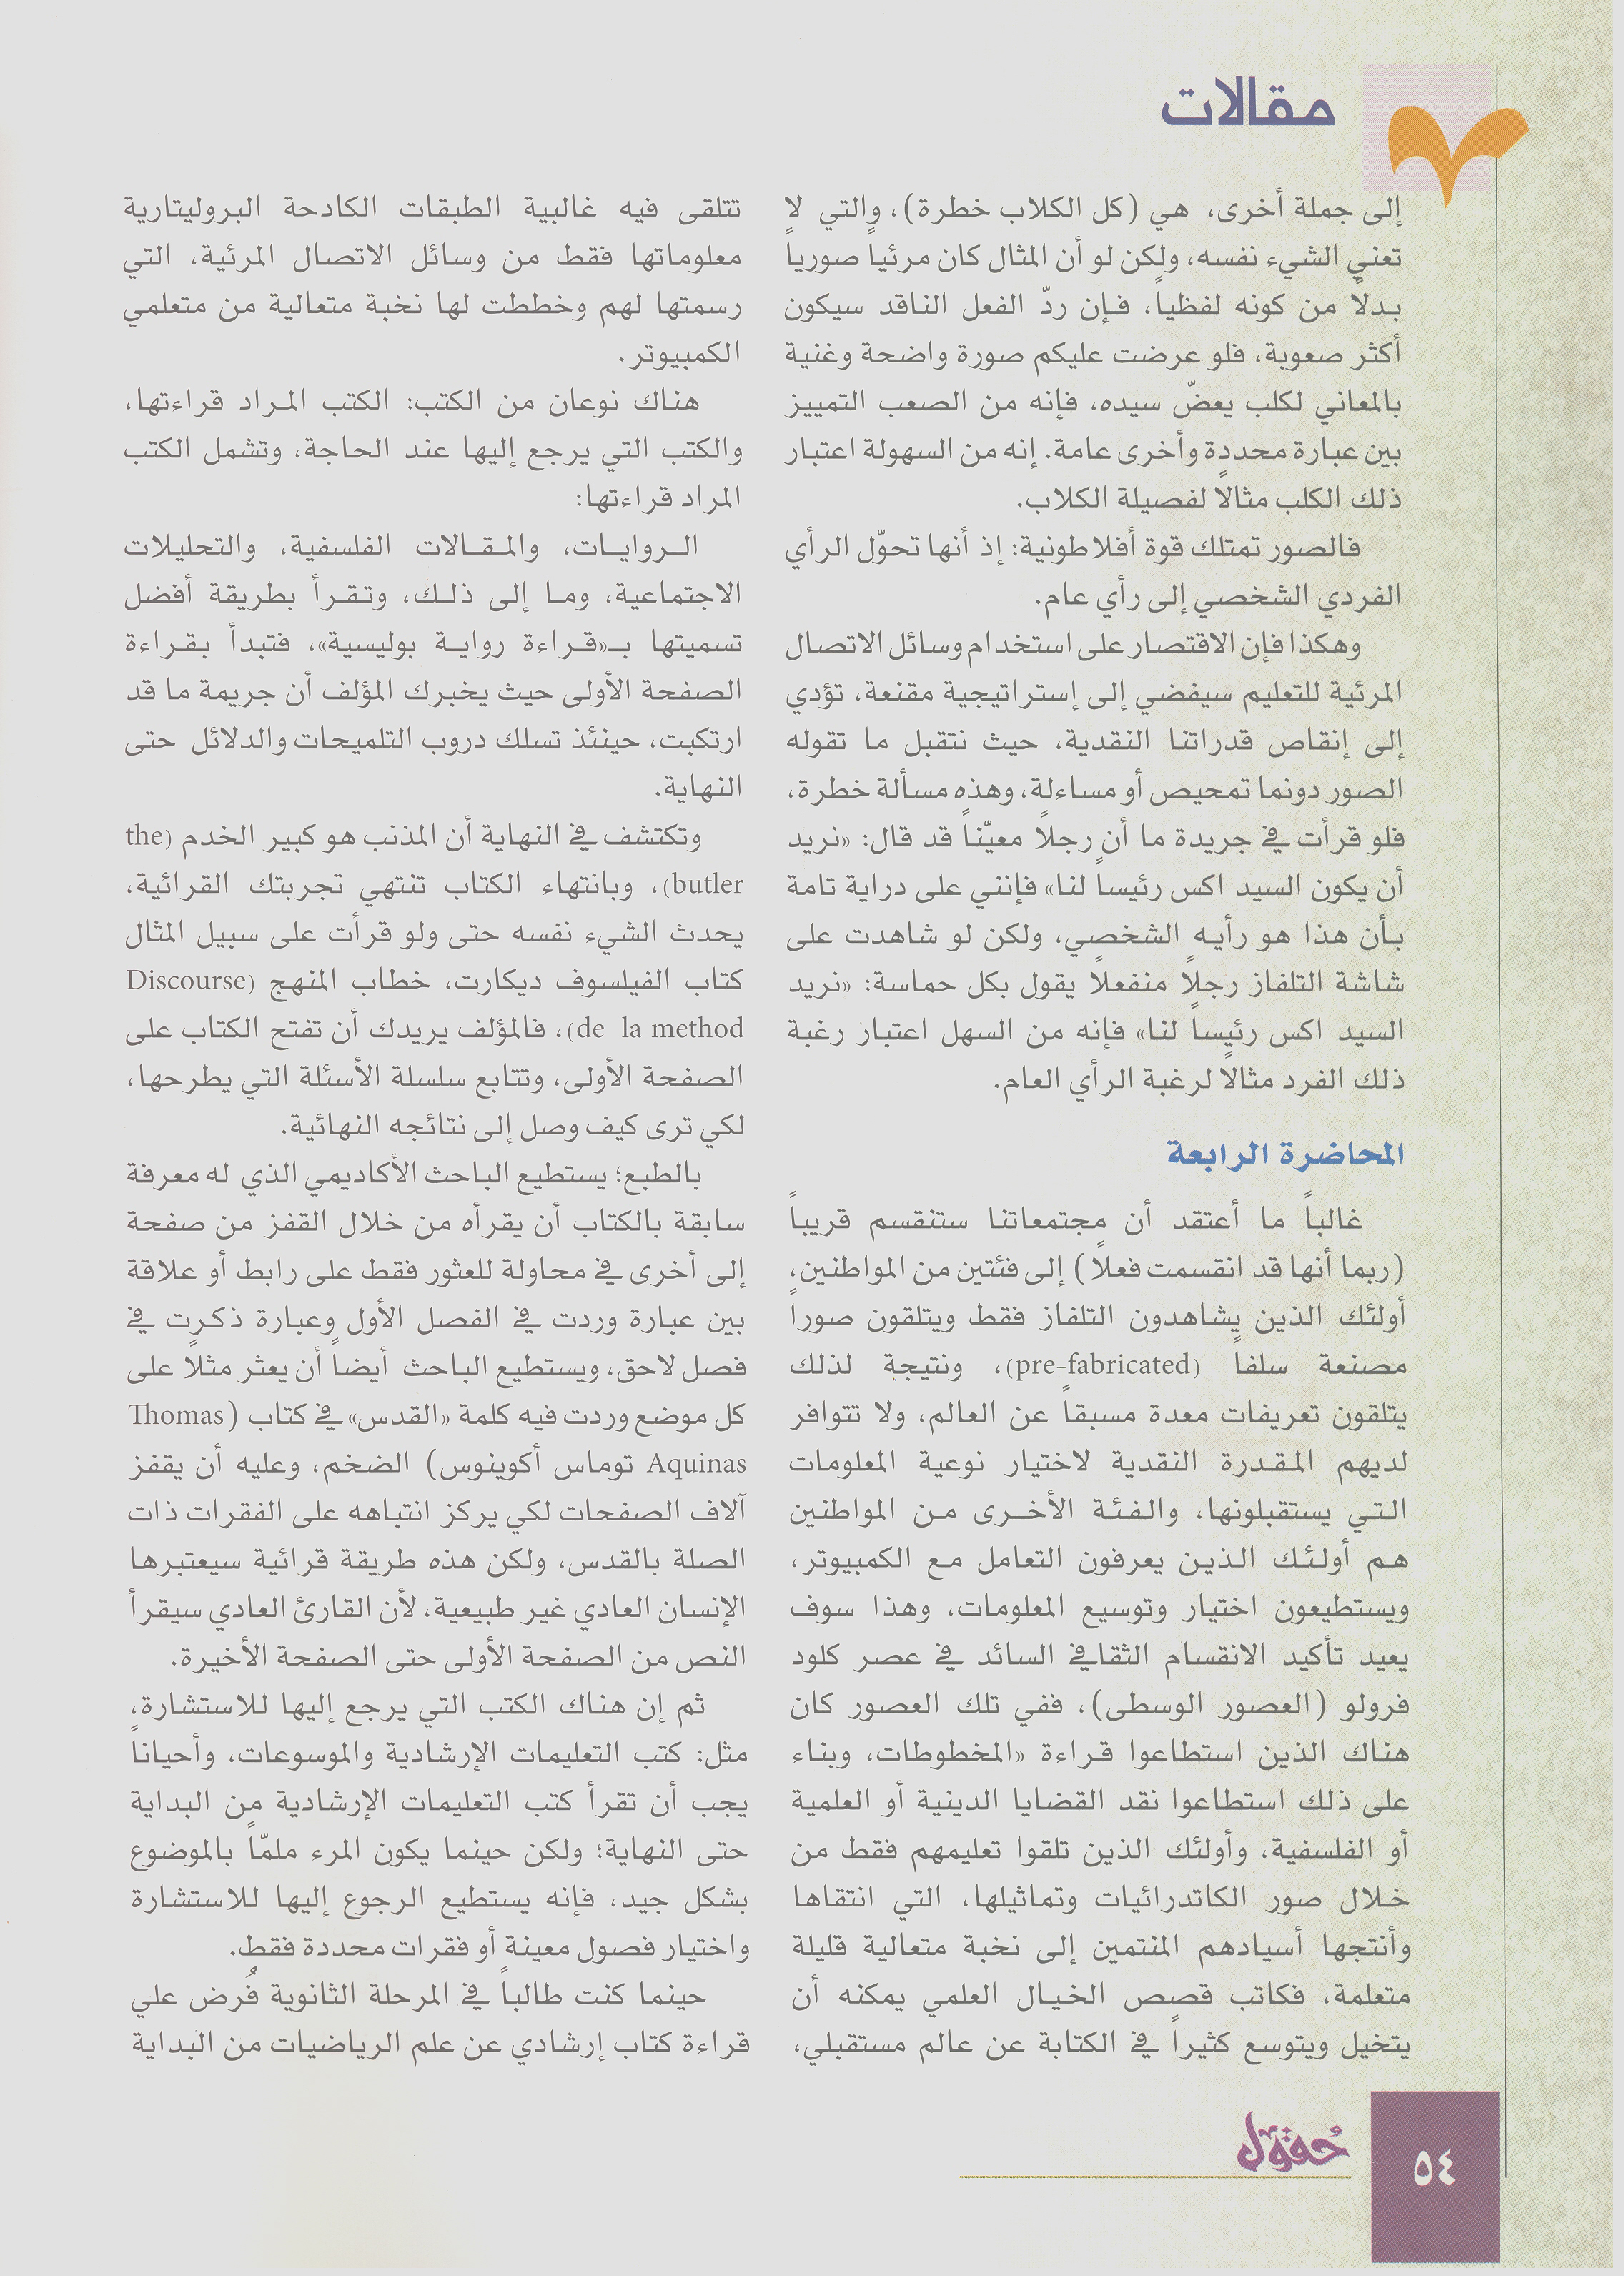 مقالات
إلى جملة أخرى، هي (كل الكلاب خطرة)، والتي لا
تعني الشيء نفسه، ولكن لو أن المثال كان مرئياً صورياً
بدلاً من كونه لفظياً، فإن ردّ الفعل الناقد سيكون
أكثر صعوبة، فلو عرضت عليكم صورة واضحة وغنية
بالمعاني لكلب يعضّ سيده، فإنه من الصعب التمييز
بين عبارة محددة وأخرى عامة. إنه من السهولة اعتبار
ذلك الكلب مثالاً لفصيلة الكلاب.
فالصور تمتلك قوة أفلاطونية: إذ أنها تحوّل الرأي
الفردي الشخصي إلى رأي عام.
وهكذا فإن الاقتصار على استخدام وسائل الاتصال
المرئية للتعليم سيفضي إلى إستراتيجية مقنعة، تؤدي
إلى إنقاص قدراتنا النقدية، حيث نتقبل ما تقوله
الصور دونما تمحيص أو مساءلة، وهذه مسألة خطرة،
فلو قرأت في جريدة ما أن رجلاً معيّناً قد قال: «نريد
أن يكون السيد اكس رئيساً لنا» فإنني على دراية تامة
بأن هذا هو رأيه الشخصي، ولكن لو شاهدت على
شاشة التلفاز رجلاً منفعلاً يقول بكل حماسة: «نريد
السيد اكس رئيساً لنا» فإنه من السهل اعتبار رغبة
ذلك الفرد مثالاً لرغبة الرأي العام.
المحاضرة الرابعة
غالباً ما أعتقد أن مجتمعاتنا ستنقسم قريباً
(ربما أنها قد انقسمت فعلاً) إلى فئتين من المواطنين،
أولئك الذين يشاهدون التلفاز فقط ويتلقون صوراً
مصنعة سلفاً (pre-fabricated)، ونتيجة لذلك
يتلقون تعريفات معدة مسبقاً عن العالم، ولا تتوافر
لديهم المقدرة النقدية لاختيار نوعية المعلومات
التي يستقبلونها، والفئة الأخرى من المواطنين
هم أولئك الذين يعرفون التعامل مع الكمبيوتر،
ويستطيعون اختيار وتوسيع المعلومات، وهذا سوف
يعيد تأكيد الانقسام الثقافي السائد في عصر كلود
فرولو (العصور الوسطى)، ففي تلك العصور كان
هناك الذين استطاعوا قراءة «المخطوطات، وبناء
على ذلك استطاعوا نقد القضايا الدينية أو العلمية
أو الفلسفية، وأولئك الذين تلقوا تعليمهم فقط من
خلال صور الكاتدرائيات وتماثيلها، التي انتقاها
وأنتجها أسيادهم المنتمين إلى نخبة متعالية قليلة
متعلمة، فكاتب قصص الخيال العلمي يمكنه أن
يتخيل ويتوسع كثيراً في الكتابة عن عالم مستقبلي،
تتلقى فيه غالبية الطبقات الكادحة البروليتارية
معلوماتها فقط من وسائل الاتصال المرئية، التي
رسمتها لهم وخططت لها نخبة متعالية من متعلمي
الكمبيوتر.
هناك نوعان من الكتب: الكتب المراد قراءتها،
والكتب التي يرجع إليها عند الحاجة، وتشمل الكتب
المراد قراءتها:
الروايات، والمقالات الفلسفية، والتحليلات
الاجتماعية، وما إلى ذلك، وتقرأ بطريقة أفضل
تسميتها بـ«قراءة رواية بوليسية»، فتبدأ بقراءة
الصفحة الأولى حيث يخبرك المؤلف أن جريمة ما قد
ارتكبت، حينئذ تسلك دروب التلميحات والدلائل حتى
النهاية.
وتكتشف في النهاية أن المذنب هو كبير الخدم (the
butler)، وبانتهاء الكتاب تنتهي تجربتك القرائية،
يحدث الشيء نفسه حتى ولو قرأت على سبيل المثال
كتاب الفيلسوف ديكارت، خطاب المنهج (Discourse
de la method)، فالمؤلف يريدك أن تفتح الكتاب على
الصفحة الأولى، وتتابع سلسلة الأسئلة التي يطرحها،
لكي ترى كيف وصل إلى نتائجه النهائية.
بالطبع؛ يستطيع الباحث الأكاديمي الذي له معرفة
سابقة بالكتاب أن يقرأه من خلال القفز من صفحة
إلى أخرى في محاولة للعثور فقط على رابط أو علاقة
بين عبارة وردت في الفصل الأول وعبارة ذكرت في
فصل لاحق، ويستطيع الباحث أيضاً أن يعثر مثلاً على
كل موضع وردت فيه كلمة «القدس» في كتاب (Thomas
Aquinas توماس أكوينوس) الضخم، وعليه أن يقفز
آلاف الصفحات لكي يركز انتباهه على الفقرات ذات
الصلة بالقدس، ولكن هذه طريقة قرائية سيعتبرها
الإنسان العادي غير طبيعية، لأن القارئ العادي سيقرأ
النص من الصفحة الأولى حتى الصفحة الأخيرة.
ثم إن هناك الكتب التي يرجع إليها للاستشارة،
مثل: كتب التعليمات الإرشادية والموسوعات، وأحياناً
يجب أن تقرأ كتب التعليمات الإرشادية من البداية
حتى النهاية؛ ولكن حينما يكون المرء ملمّاً بالموضوع
بشكل جيد، فإنه يستطيع الرجوع إليها للاستشارة
واختيار فصول معينة أو فقرات محددة فقط.
حينما كنت طالباً في المرحلة الثانوية فُرض علي
قراءة كتاب إرشادي عن علم الرياضيات من البداية
حُقول
٥٤